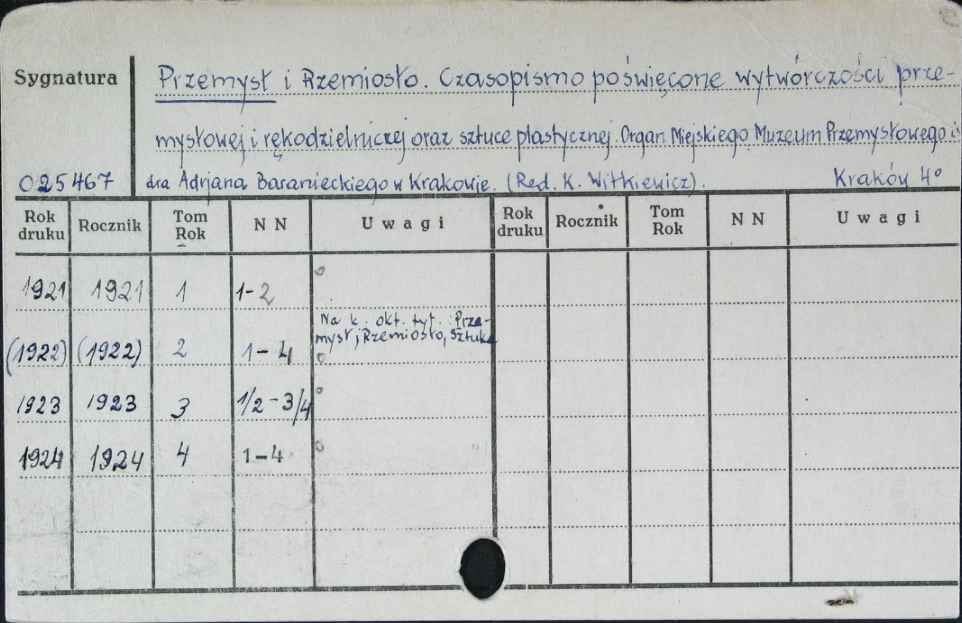 Sygnatura
Przemysł i Rzemiosło. Czasopismo poświęcone wytwórczości prze-
mysłowej i rękodzielniczej oraz sztuce plastycznej. Organ Miejskiego Muzeum Przemysłowego im
025467 dra Adrjana Baranieckiego w Krakowie. (Red. K. Witkiewicz). Kraków 4°
Rok druku Rocznik Tom Rok NN Uwagi Rok druku Rocznik Tom Rok NN Uwagi
1921 1921 1 1-2
Na k. okł. tyt.: Prze-
mysł, Rzemiosło, Sztuka
(1922) (1922) 2 1-4
1923 1923 3 1/2-3/4
1924 1924 4 1-4